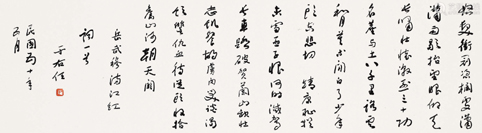 怒髮衝冠憑闌處瀟
瀟雨歇抬望眼仰天
長嘯壯懷激烈三十功
名塵與土八千里路雲
和月莫等閒白了少年
頭空悲切 靖康恥猶
未雪臣子恨何時滅駕
長車踏破賀蘭山缺壯
志飢餐胡虜肉笑談渴
飲匈奴血待從頭收拾
舊山河朝天闕
岳武穆滿江紅
詞一首
于右任
民國五十年
五月